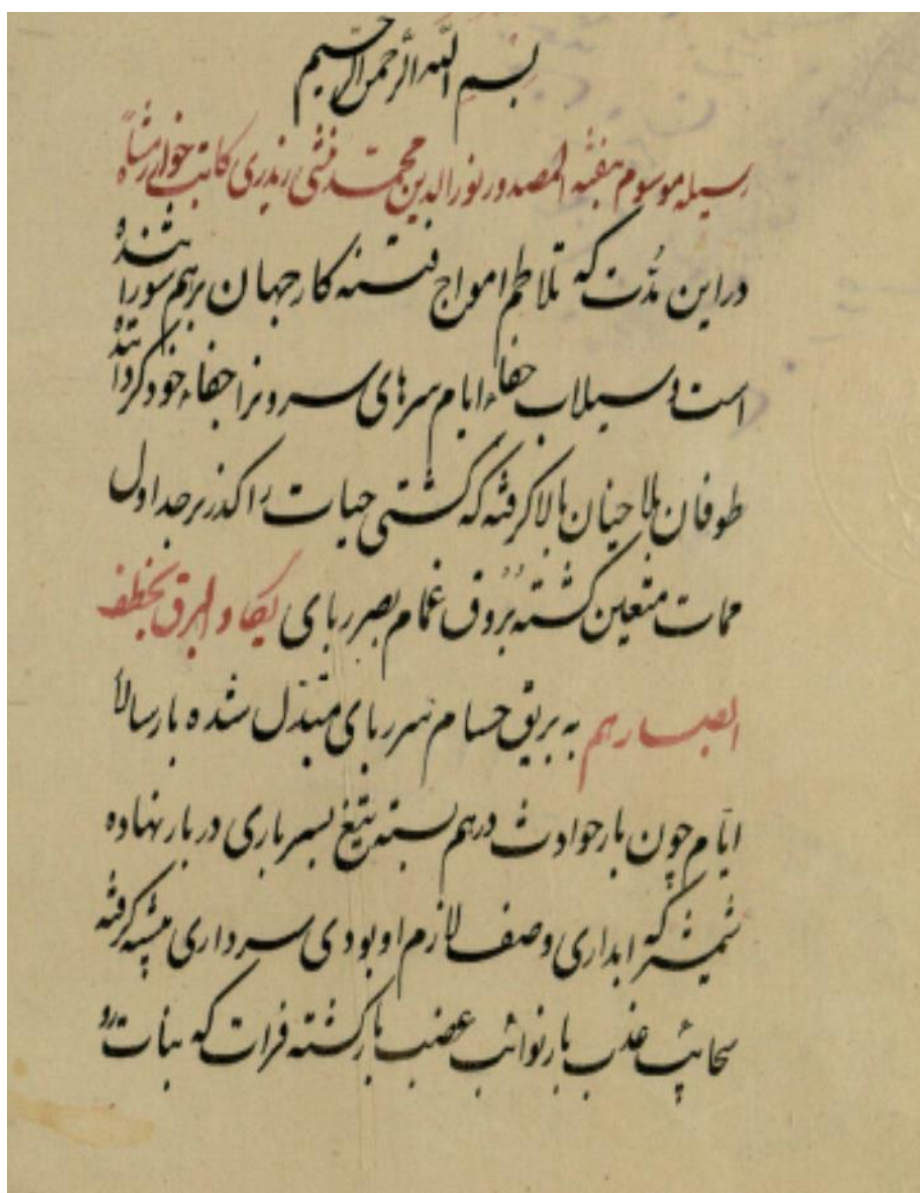 بسم الله الرحمن الرحیم
رسیله موسوم بنفثه المصدور نورالدین محمد منشی زیدری کاتب خوارزمشاه
در این مدّت که تلاطم امواج فتنه کار جهان برهم شورانیده
است و سیلاب جفاء ایام سرهای سرورانرا جفاء خود گردانیده
طوفان بلا چنان بالا گرفته که کشتی حیات را گذر بر جداول
ممات متعین گشته بُروق غمام بصر ربای یکاد البرق یخطف
ابصارهم به بریق حسام سرربای متبدّل شده بار سالار
ایّام چون بار حوادث درهم بسته تیغ بسرباری در بار نهاده
شمشیر که ابداری وصف لازم او بودی سرداری پیشه گرفته
سحایب عذب بار نوائب عضب بار گشته فرات که نبات رو